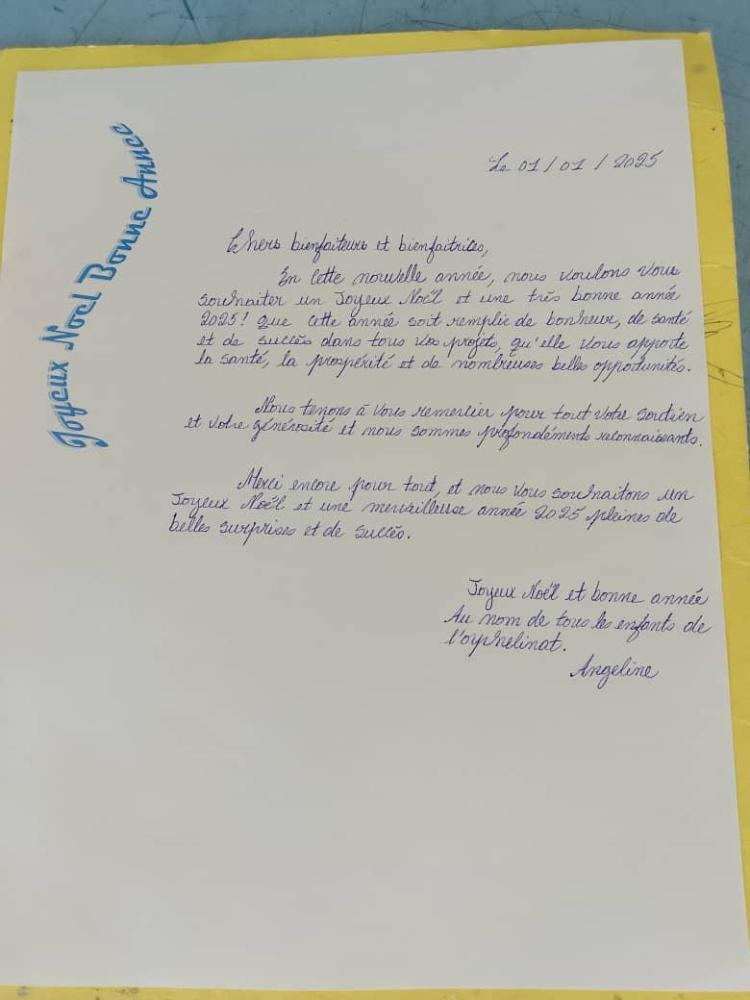 Joyeux Noel Bonne Annee
Le 01/01/2025
Chers bienfaiteurs et bienfaitrices,
En cette nouvelle année, nous voulons vous
souhaiter un Joyeux Noël et une très bonne année
2025! que cette année soit remplie de bonheur, de santé
et de succès dans tous vos projets, qu'elle vous apporte
la santé, la prospérité et de nombreuses belles opportunités.
Nous tenons à vous remercier pour tout votre soutien
et votre générosité et nous sommes profondéments reconnaissants.
Merci encore pour tout, et nous vous souhaitons un
Joyeux Noël et une merveilleuse année 2025 pleines de
belles surprises et de succès.
Joyeux Noël et bonne année
Au nom de tous les enfants de
l'orphelinat.
Angeline